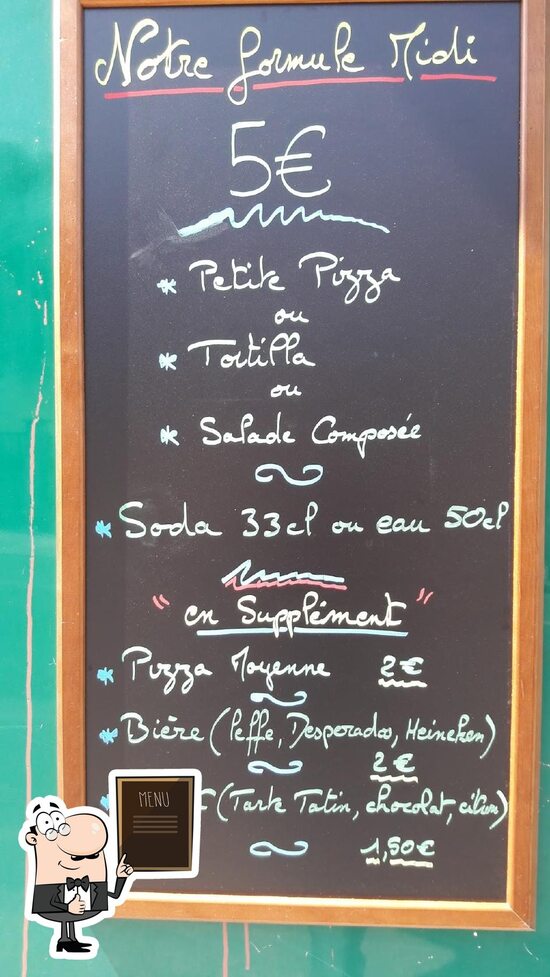 Notre formule Midi
5€
* Petite Pizza
ou
* Tortilla
ou
* Salade Composée
* Soda 33cl ou eau 50cl
"en Supplément"
* Pizza Moyenne 2€
* Bière (Leffe, Desperados, Heineken)
2€
(Tarte Tatin, chocolat, citron)
1,50€
MENU